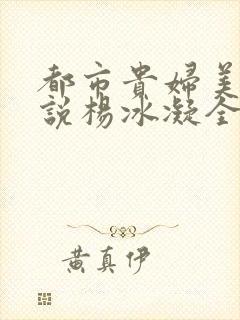 都市貴婦美
說楊冰凝全
黃真伊